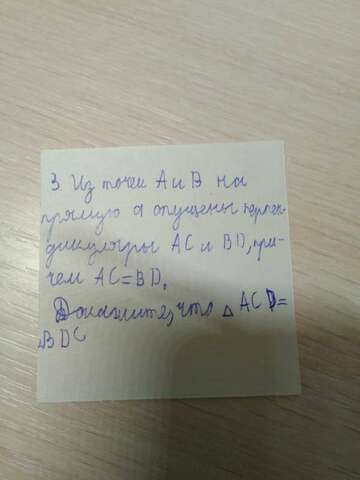 3. Из точек А и В на
прямую а опущены перпен-
дикуляры АС и ВD, при-
чем АС=ВD.
Докажите, что △ АСD=
ВDС